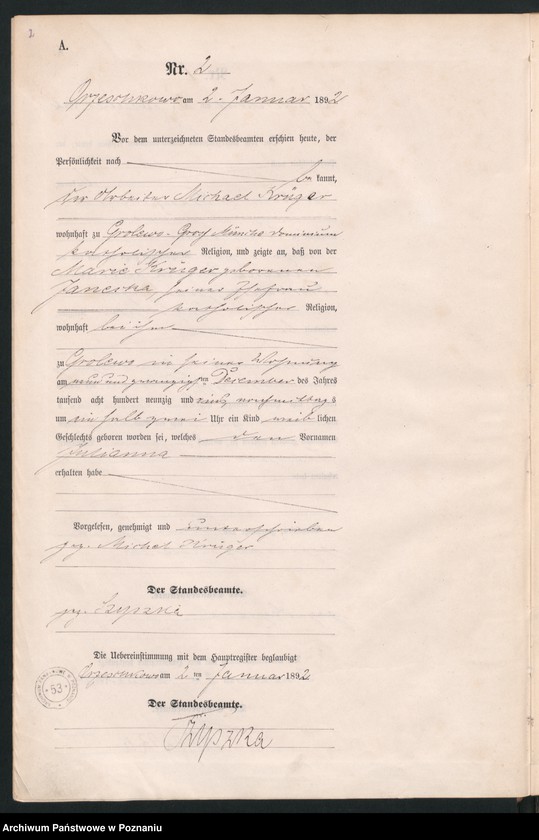 2
A.
Nr. 2
Orzeschkowo am 2. Januar 1892
Vor dem unterzeichneten Standesbeamten erschien heute, der
Persönlichkeit nach
be kannt,
der Arbeiter Michael Krüger
wohnhaft zu Grolewo- dominium
katholischer Religion, und zeigte an, daß von der
Marie Krüger geborenen
Janecka, seiner Ehefrau
katholischer Religion,
wohnhaft bei ihm
zu Grolewo in seiner Wohnung
am neun und zwanzigsten Dezember des Jahres
tausend acht hundert neunzig und eins nachmittags
um ein halb zwei Uhr ein Kind weib lichen
Geschlechts geboren worden sei, welches den Vornamen
Julianna
erhalten habe
Vorgelesen, genehmigt und unterschrieben
gez. Michel Krüger
Der Standesbeamte.
gez. Zypzka
Die Uebereinstimmung mit dem Hauptregister beglaubigt
Orzeschkowo am 2 ten Januar 1892
53
Der Standesbeamte.
Zypzka
Archiwum Państwowe w Poznaniu